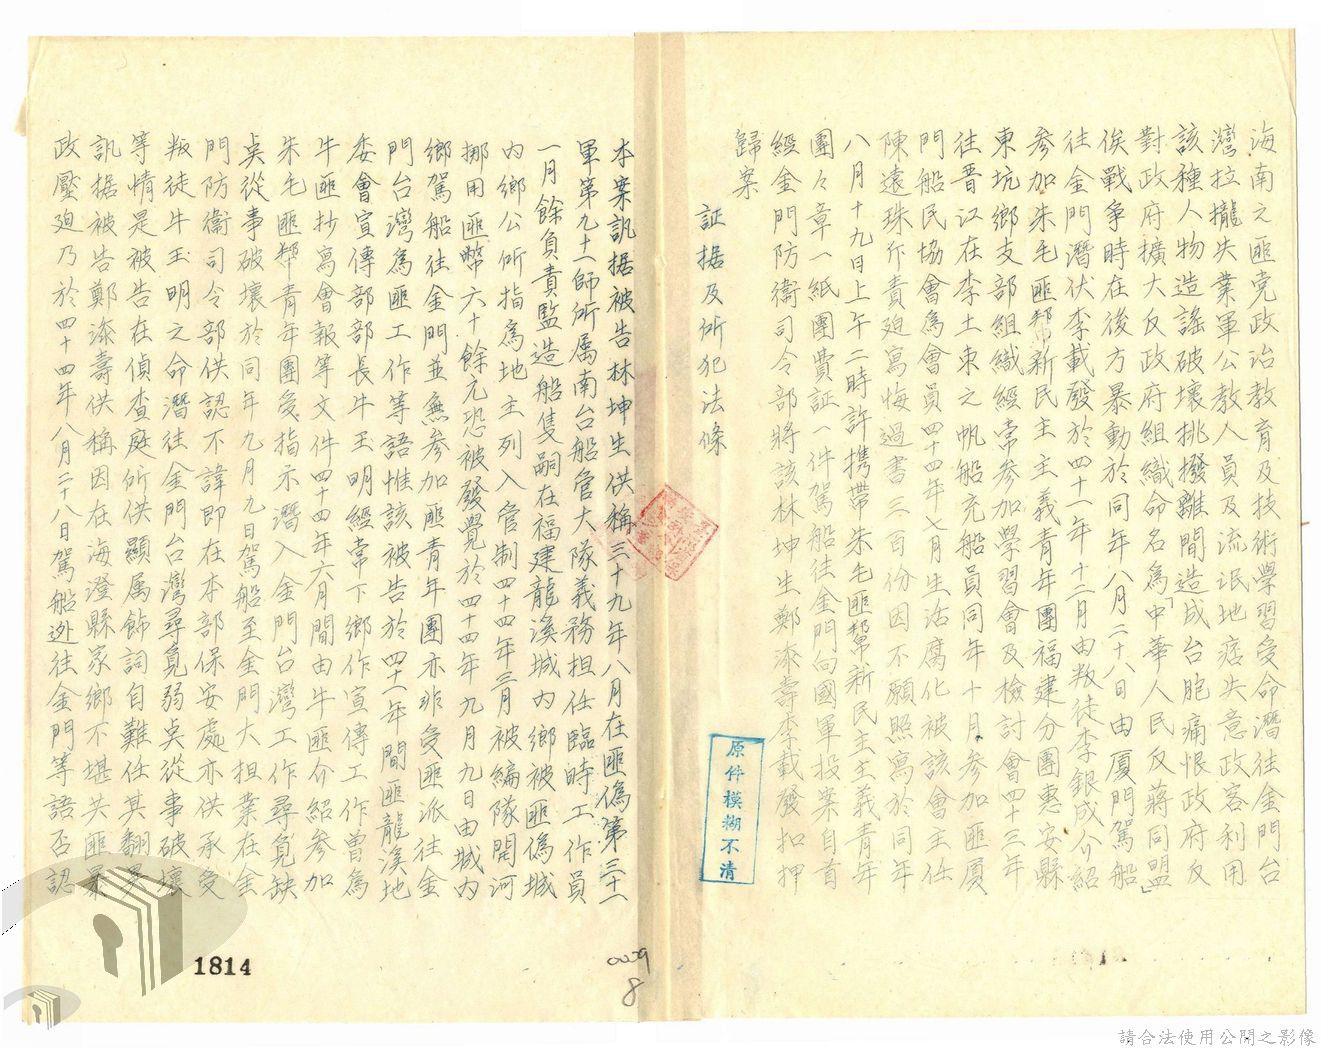 海南之匪党政治教育及技術學習受命潛往金門台
灣拉攏失業軍公教人員及流氓地痞失意政客利用
該種人物造謠破壞挑撥離間造成台胞痛恨政府反
對政府擴大反政府組織命名為「中華人民反蔣同盟」
俟戰爭時在後方暴動於同年八月二十八日由厦門駕船
往金門潛伏李載發於四十一年十二月由叛徒李銀成介紹
參加朱毛匪幫新民主主義青年團福建分團惠安縣
東坑鄉支部組織經常參加學習會及檢討會四十三年
往晋江在李土東之帆船充船員同年十月參加匪厦
門船民協會為會員四十四年七月生活腐化被該會主任
陳遠珠斥責廹寫悔過書三百份因不願照寫於同年
八月十九日上午二時許携帶朱毛匪幫新民主主義青年
團々章一紙團費証一件駕船往金門向國軍投案自首
經金門防衛司令部將該林坤生鄭漆壽李載發扣押
歸案
証据及所犯法條
本案訊据被告林坤生供稱三十九年八月在匪偽第三十一
軍第九十一師所属南台船管大隊義務担任臨時工作員
一月餘負責監造船隻嗣在福建龍溪城内鄉被匪偽城
内鄉公所指為地主列入管制四十四年三月被編隊開河
挪用匪幣六十餘元恐被發覺於四十四年九月九日由城内
鄉駕船往金門並無參加匪青年團亦非受匪派往金
門台灣為匪工作等語惟該被告於四十一年間匪龍溪地
委會宣傳部部長牛玉明經常下鄉作宣傳工作曾為
牛匪抄寫會報等文件四十四年六月間由牛匪介紹參加
朱毛匪幫青年團受指示潛入金門台灣工作尋覓缺
吳從事破壞於同年九月九日駕船至金門大担業在金
門防衛司令部供認不諱即在本部保安處亦供承受
叛徒牛玉明之命潛往金門台灣尋覓弱吳從事破壞
等情是被告在偵查庭所供顯属飾詞自難任其翻異
訊据被告鄭漆壽供稱因在海澄縣家鄉不堪共匪暴
政壓廹乃於四十四年八月二十八日駕船逊往金門等語否認
原件模糊不清
1814
0009
8
請合法使用公開之影像